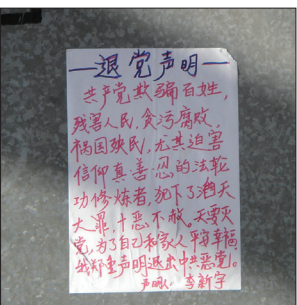 —退党声明—
共产党欺骗百姓，
残害人民，贪污腐败，
祸国殃民，尤其迫害
信仰真善忍的法轮
功修炼者，犯下了滔天
大罪，十恶不赦。天要灭
党，为了自己和家人平安幸福，
我郑重声明退出中共恶党。
声明人：李新宇